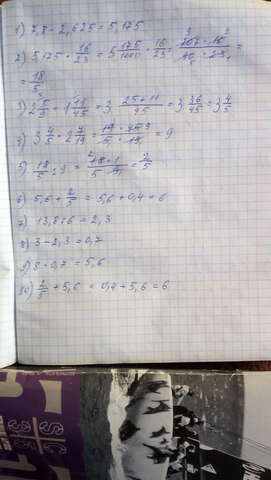 1) 7,8 - 2,625 = 5,175
2) 5,175 · 16/23 = 5 175/1000 · 16/23 = 207 · 16 / 40 · 23 =
= 18/5
3) 2 5/9 + 1 11/45 = 3 25+11/45 = 3 36/45 = 3 4/5
4) 3 4/5 · 2 7/19 = 19 · 45 / 5 · 19 = 9
5) 18/5 : 9 = 18 · 1 / 5 · 9 = 2/5
6) 5,6 + 2/5 = 5,6 + 0,4 = 6
7) 13,8 : 6 = 2,3
8) 3 - 2,3 = 0,7
9) 8 · 0,7 = 5,6
10) 2/5 + 5,6 = 0,4 + 5,6 = 6